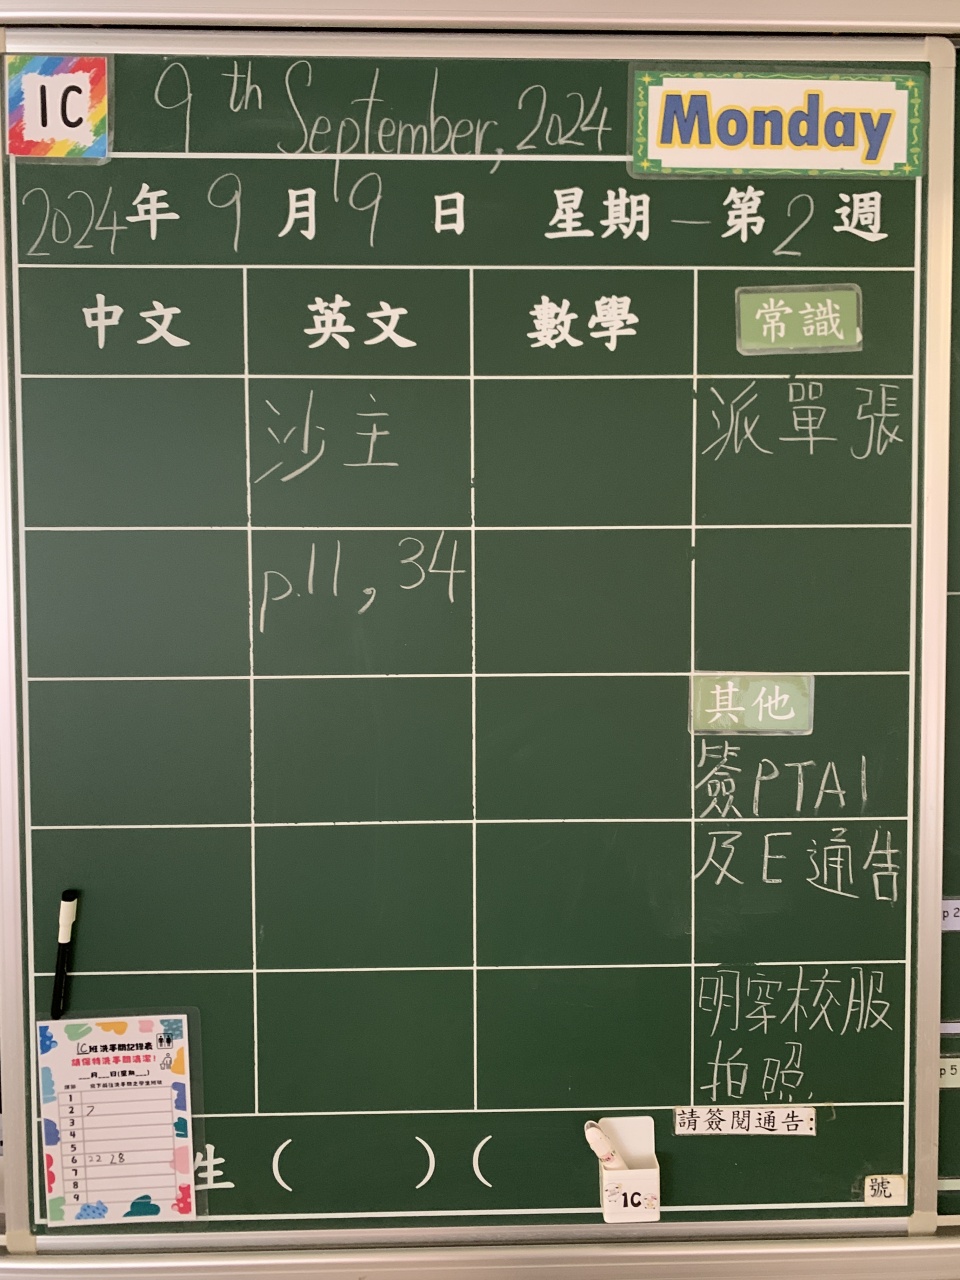 1C
9th September, 2024
Monday
2024年9月9日 星期一 第2週
中文 英文 數學 常識
沙主 派單張
p.11, 34
其他
簽PTA1
及E通告
明穿校服
拍照
請簽閱通告:
生 ( ) (
1C
號
p 2
p 5
1C班洗手間記錄表
請保持洗手間清潔!
___月___日(星期___)
1
2 7
3
4
5
6 22 28
7
8
9